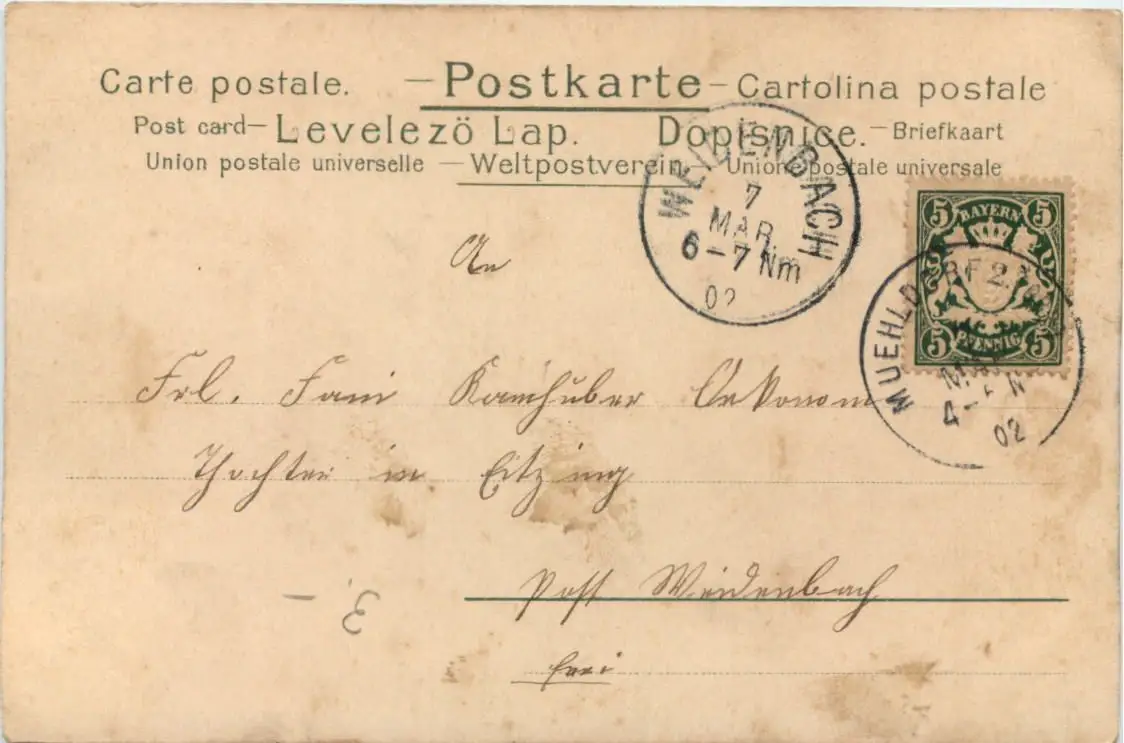 Carte postale. — Postkarte — Cartolina postale
Post card — Levelezö Lap. Dopisnice. — Briefkaart
Union postale universelle — Weltpostverein Unione postale universale
WEIDENBACH
7
MAR.
6-7 Nm
02
5 BAYERN 5
5 PFENNIG 5
MUEHLDORF 2
MAR
4-5 N
02
An
Frl. Fani Kamhuber Oekonom
Thochter in Eitzing
Post Weidenbach
frei
3.-